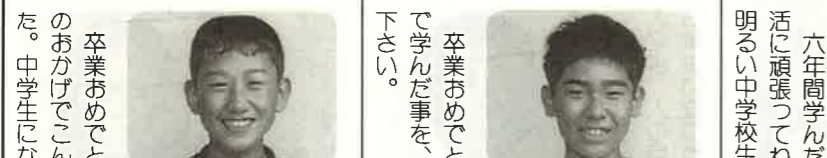 六年間学んだ
活に頑張ってね
明るい中学校生
卒業おめでと
で学んだ事を、
下さい。
卒業おめでと
のおかげでこん
た。中学生にな